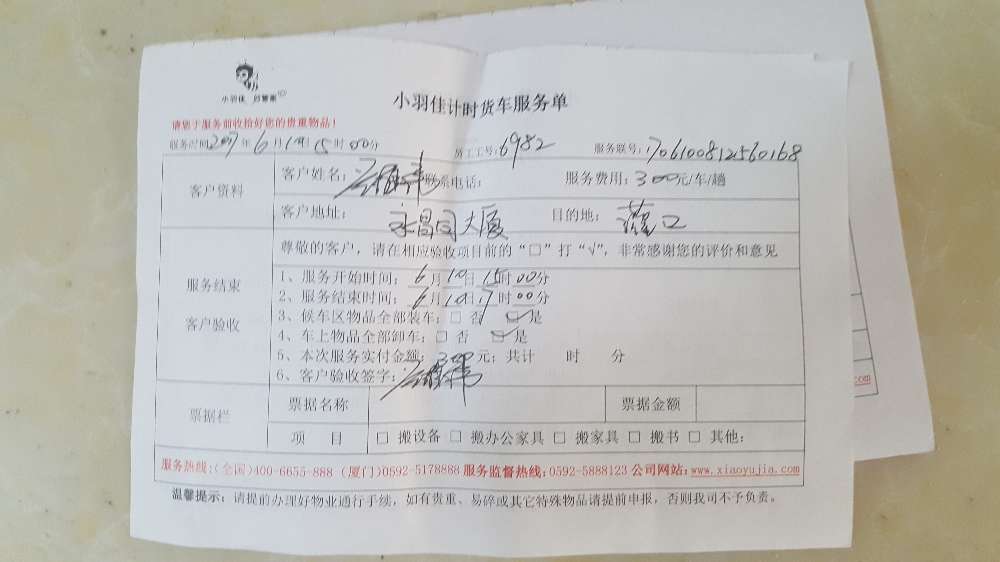 小羽佳
小羽佳计时货车服务单
请您于服务前收拾好您的贵重物品！
服务时间 2017年6月10日15时00分 员工工号：6982 服务联号：1706100812560168
客户资料
客户姓名： 联系电话： 服务费用：300元/车/趟
客户地址：永昌园大厦 目的地：灌口
服务结束
客户验收
尊敬的客户，请在相应验收项目前的“□”打“√”，非常感谢您的评价和意见
1、服务开始时间：6月10日15时00分
2、服务结束时间：6月10日17时00分
3、候车区物品全部装车：□ 否 ☑ 是
4、车上物品全部卸车：□ 否 ☑ 是
5、本次服务实付金额：300元；共计 时 分
6、客户验收签字：
票据栏
票据名称 票据金额
项 目 □ 搬设备 □ 搬办公家具 □ 搬家具 □ 搬书 □ 其他：
服务热线：(全国)400-6655-888 (厦门)0592-5178888 服务监督热线：0592-5888123 公司网站：www.xiaoyujia.com
温馨提示：请提前办理好物业通行手续，如有贵重、易碎或其它特殊物品请提前申报，否则我司不予负责。
.com